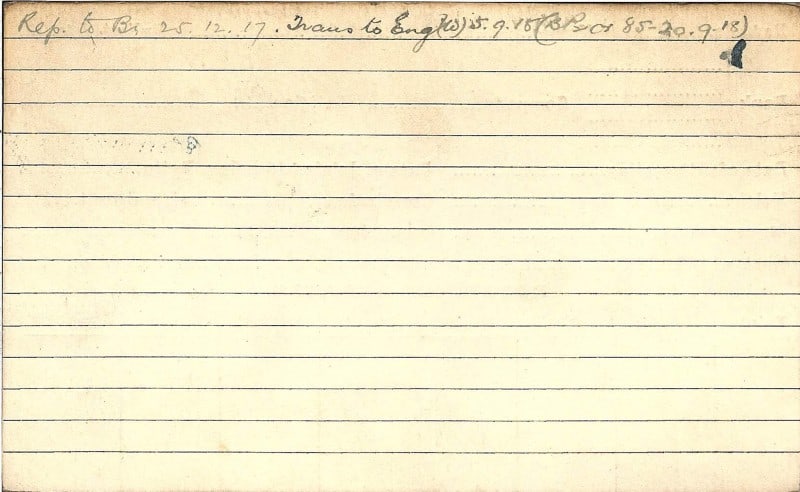 Rep. to Bs 25.12.17. Trans to Eng (W) 5.9.18 (B.R. 85-20.9.18)